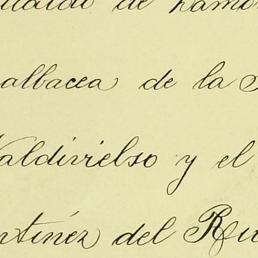 de Ramo
albacea de la
Valdivielso y el
ntinéz del Ru